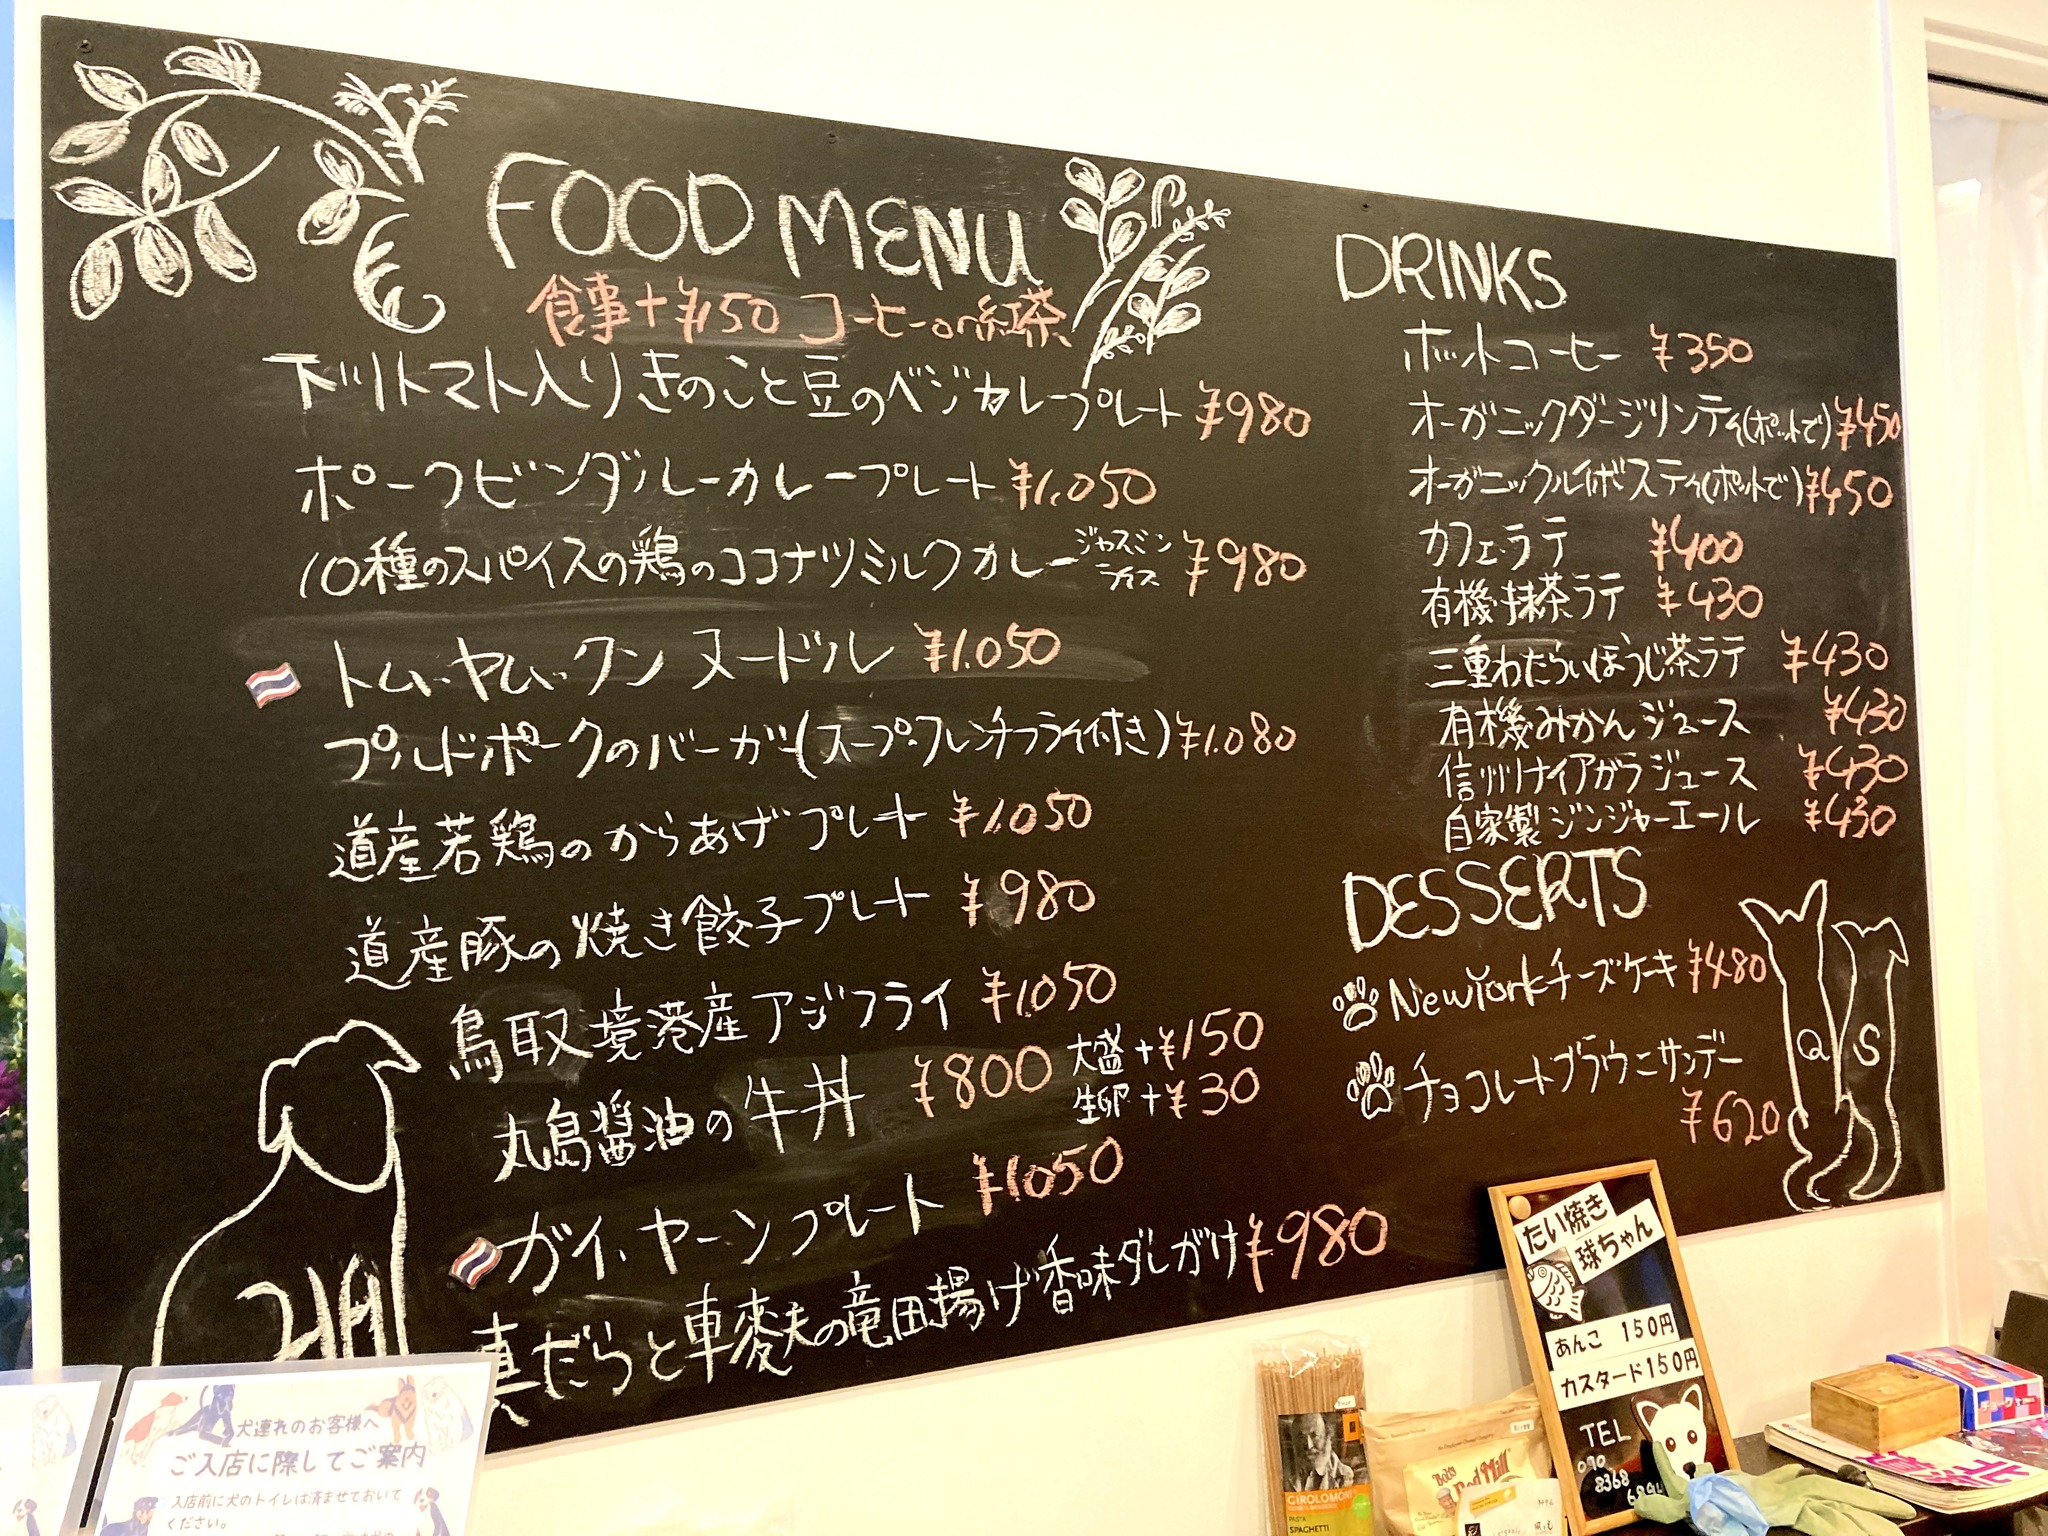 FOOD MENU
食事+¥150 コーヒーor紅茶
下リトマト入りきのこと豆のベジカレープレート ¥980
ポークビンダルーカレープレート ¥1,050
10種のスパイスの鶏のココナツミルクカレー ジャスミンライス ¥980
トムヤムクンヌードル ¥1.050
プルドポークのバーガー(スープ・フレンチフライ付き) ¥1.080
道産若鶏のからあげプレート ¥1,050
道産豚の焼き餃子プレート ¥980
鳥取境港産アジフライ ¥1,050
丸島醤油の牛丼 ¥800 大盛+¥150
生卵+¥30
ガイ・ヤーンプレート ¥1050
真だらと車麦夫の竜田揚げ香味ダレがけ ¥980
DRINKS
ホットコーヒー ¥350
オーガニックダージリンティ(ポットで) ¥450
オーガニックルイボスティ(ポットで) ¥450
カフェラテ ¥400
有機抹茶ラテ ¥430
三重わたらいほうじ茶ラテ ¥430
有機みかんジュース ¥430
信州ナイアガラジュース ¥430
自家製ジンジャーエール ¥430
DESSERTS
NewYorkチーズケーキ ¥480
チョコレートブラウニサンデー
¥620
Q S
たい焼き
球ちゃん
あんこ 150円
カスタード150円
TEL
090
8368
犬連れのお客様へ
ご入店に際してご案内
入店前に犬のトイレは済ませておいて
ください。
GIROLOMONI
PASTA
SPAGHETTI
Bob's
Red Mill
チョーク